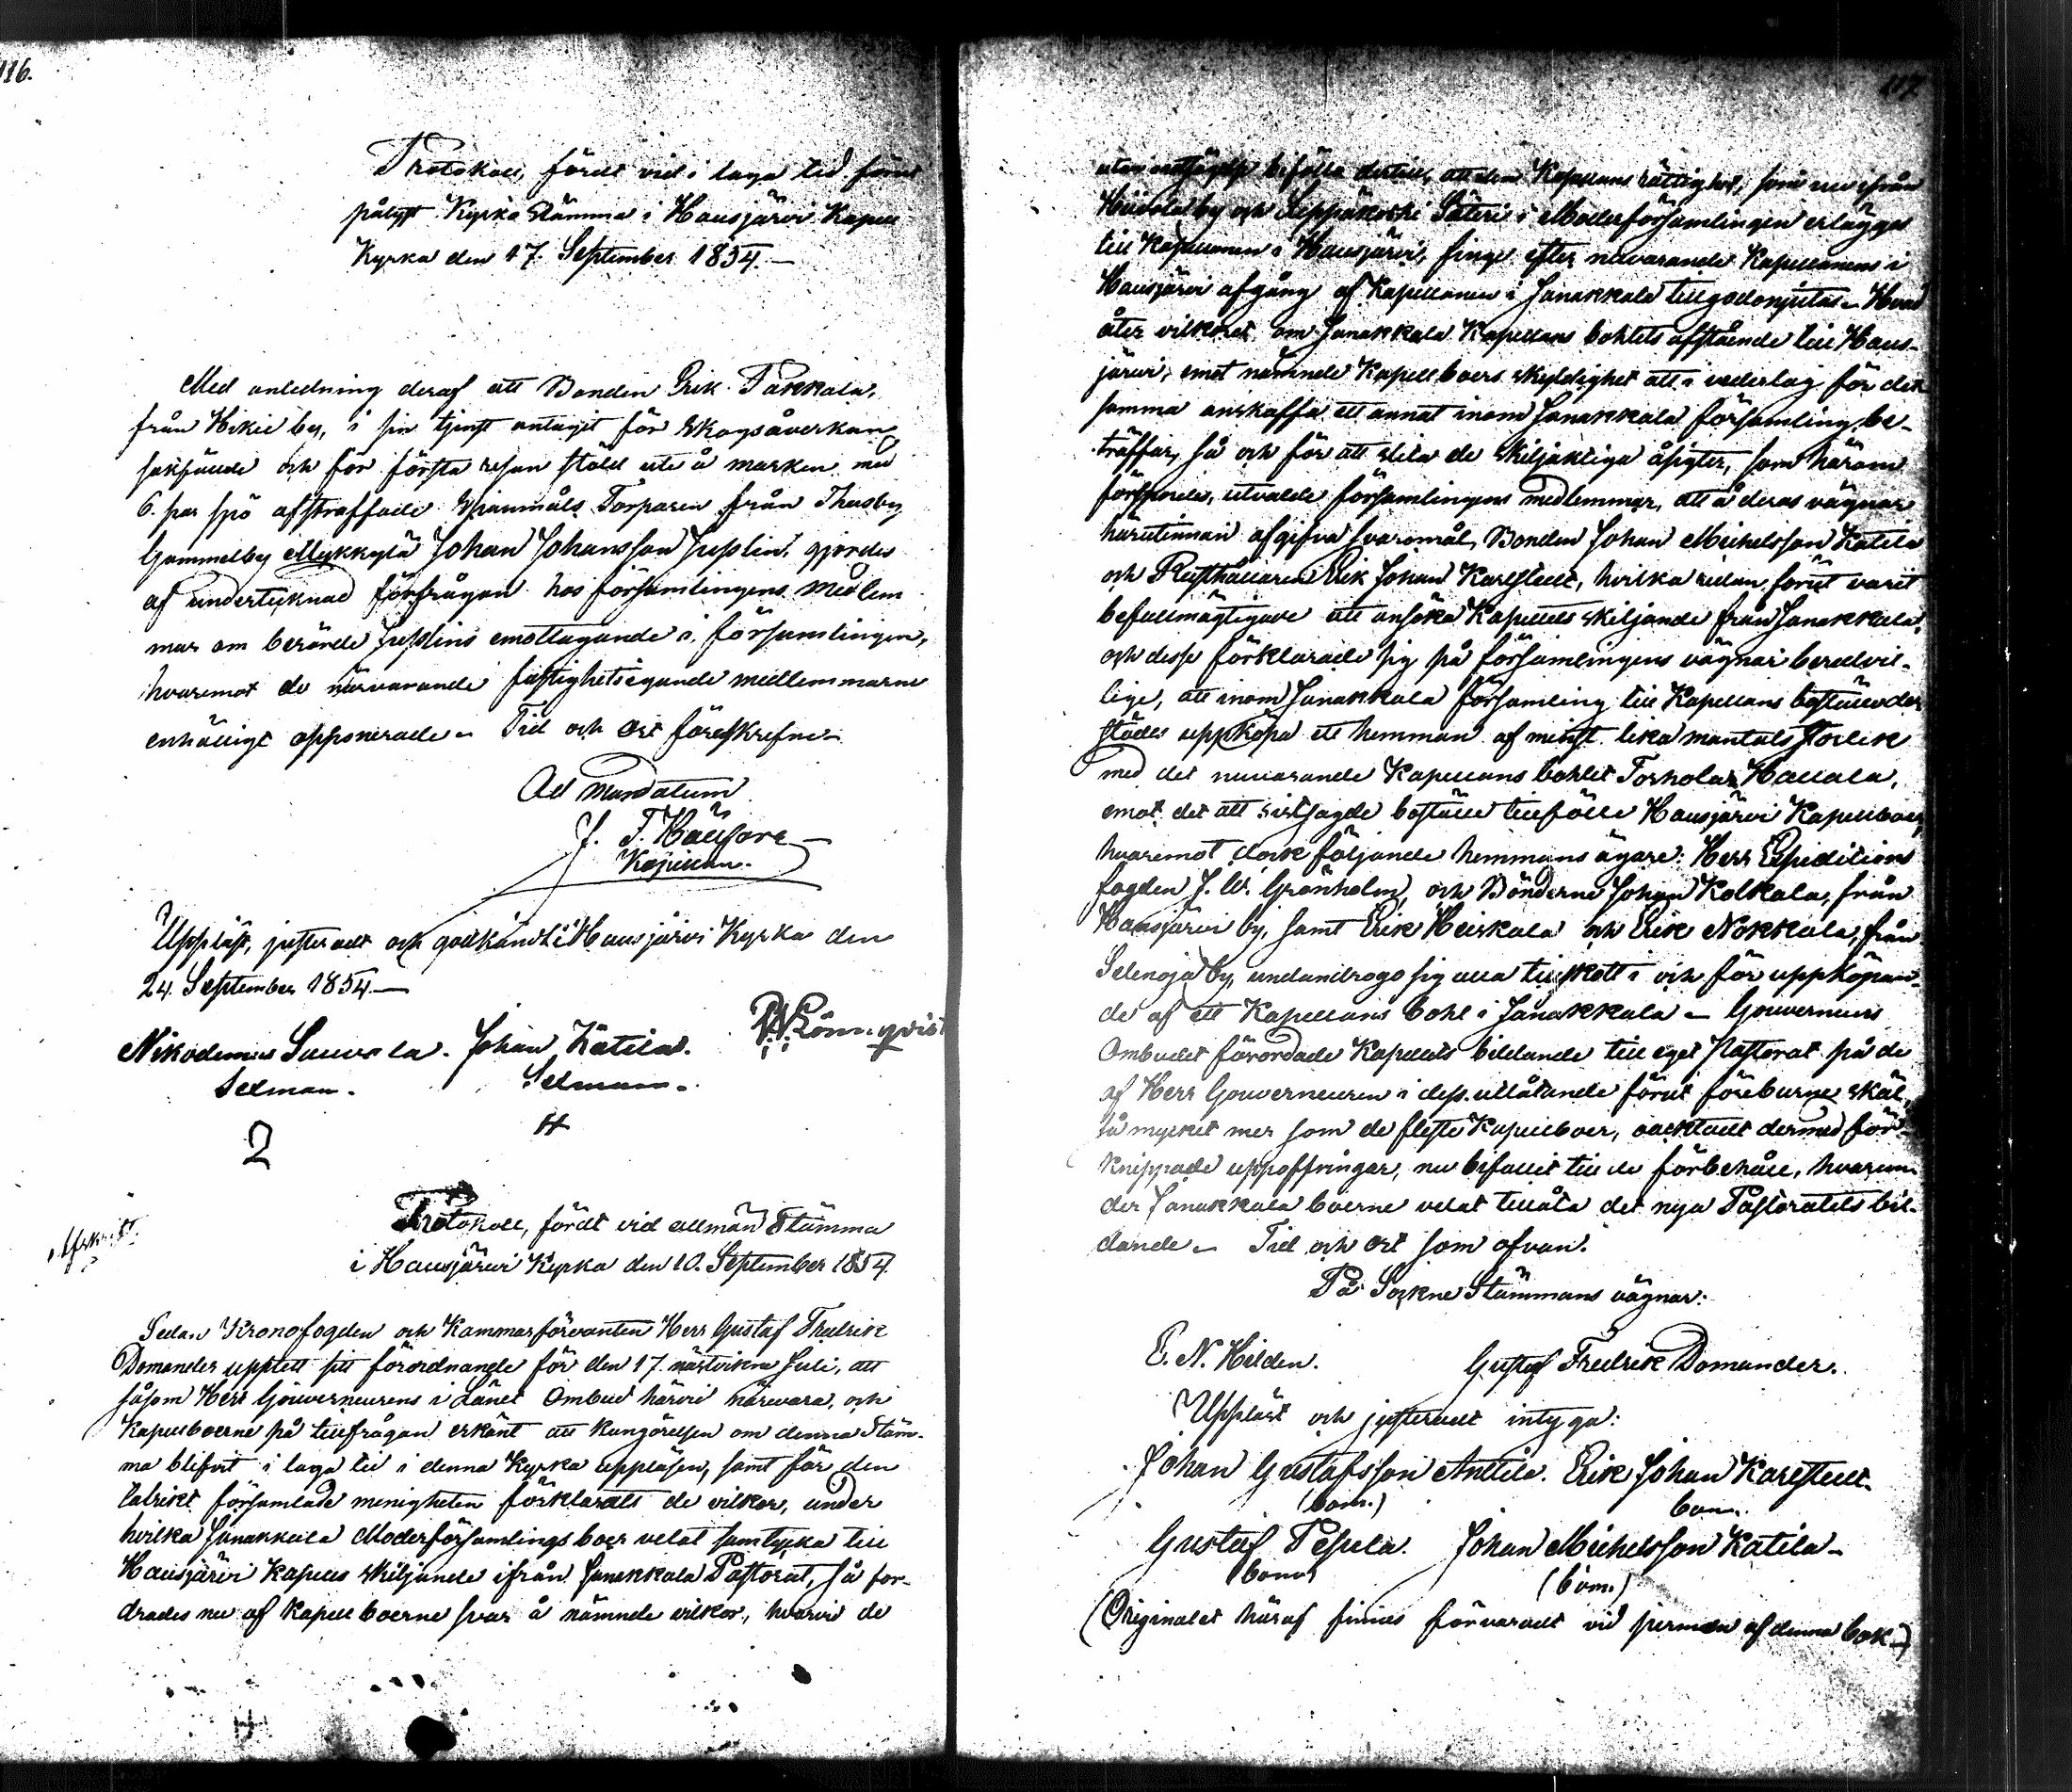 116.
Protokoll, fördt vid i laga tid förut
pålyst Kyrko Stämma i Hausjärvi Kapell
Kyrka den 17. September 1854.—
Med anledning deraf att Bonden Erik Takkala,
från Hikie by, i sin tjenst antagit för skogsåverkan
sakfällde och för första resan ståld ute å marken med
6. par spö afstraffade Spanmåls Torparen från Thusby
Gammelby Mykkylä Johan Johansson Juslin, gjordes
af undertecknad förfrågan hos församlingens medlem-
mar om berörde Juslins emottagande i församlingen,
hvaremot de närvarande fastighetsegande medlemmarne
enhälligt opponerade. Tid och Ort föreskrefne.
Ad Mandatum
J. F.
Kapellan.
Uppläst, justeradt och godkändt i Hausjärvi Kyrka den
24. September 1854.—
Nikodemus Suuvala. Johan Kätilä. Lönnqvist
Sexman. Sexman.
2
Afskrift.
Protokoll, fördt vid allmän Stämma
i Hausjärvi Kyrka den 10. September 1854.
Sedan Kronofogden och Kammarförvanten Herr Gustaf Fredrik
Domander upptett sitt förordnande för den 17. nästvikne Juli, att
såsom Herr Gouverneurens i Länet Ombud härvid närvara, och
Kapellboerne på tillfrågan erkänt att kungörelsen om denna Stäm-
ma blifvit i laga tid i denna Kyrka uppläsen, samt för den
talrikt församlade menigheten förklarats de vilkor, under
hvilka Janakkala Moderförsamlings boer velat samtycka till
Hausjärvi Kapells skiljande ifrån Janakkala Pastorat, så for-
drades nu af Kapellboerne svar å nämnde vilkor, hvarvid de
117.
utan motsägelse biföllo dertill, att den Kapellans rättighet, som nu ifrån
Hiivola by och Seppäkoski Säteri i Moderförsamlingen erlägges
till Kapellanen i Hausjärvi, finge efter nuvarande Kapellanens i
Hausjärvi afgång af Kapellanen i Janakkala tillgodonjutas. Hvad
åter vilkoret om Janakkala Kapellans bohlets afstående till Haus-
järvi, emot nämnde Kapellboers skyldighet att i vederlag för det-
samma anskaffa ett annat inom Janakkala församling, be-
träffar, så och för att slita de skiljaktiga åsigter, som härom
försporde, utvalde församlingens medlemmar, att å deras vägnar
härutinnan afgifva svaromål, Bonden Johan Michelsson Katila
och Rusthållaren Erik Johan Karlstedt, hvilka redan förut varit
befullmägtigade att ansöka Kapellets skiljande från Janakkala,
och desse förklarade sig på församlingens vägnar beredvil-
lige, att inom Janakkala församling till Kapellans boställe der-
städes uppköpa ett hemman af minst lika mantals storlek
med det nuvarande Kapellans bohlet Torhola Hallala,
emot det att sistsagde boställe tillfölle Hausjärvi Kapellboer,
hvaremot dock följande hemmans ägare: Herr Expeditions
fogden J. W. Grönholm, och Bönderne Johan Kolkala, från
Hausjärvi by, samt Erik Heikkala och Erik Nokkala, från
Selenoja by, undandrogo sig alla tillskott i och för uppköpan-
de af ett Kapellans bohl i Janakkala — Gouverneurs
Ombudet förordade Kapellets bildande till eget Pastorat på de
af Herr Gouverneuren i dess utlåtande förut föreburne skäl,
så mycket mer som de fleste Kapellboer, oacktadt dermed för-
knippade uppoffringar, nu bifallit till de förbehåll, hvarun-
der Janakkala boerne velat tillåta det nya Pastoratets bil-
dande. Tid och ort som ofvan.
På Sockne Stämmans vägnar:
E. N. Hilden. Gustaf Fredrik Domander.
Uppläst och justeradt intyga:
Johan Gustafsson Anttila. Erik Johan Karlstedt.
(bom.) bom.
Gustaf Pesula. Johan Michelsson Katila.
bom. (bom.)
(Originalet häraf finnes förvaradt vid permen af denna bok.)